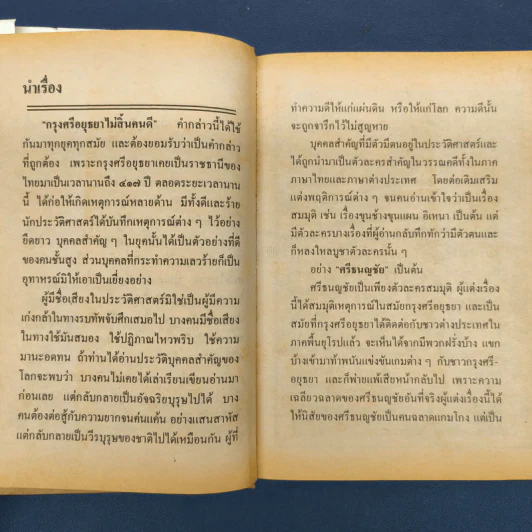 นำเรื่อง
"กรุงศรีอยุธยาไม่สิ้นคนดี" คำกล่าวนี้ได้ใช้
กันมาทุกยุคทุกสมัย และต้องยอมรับว่าเป็นคำกล่าว
ที่ถูกต้อง เพราะกรุงศรีอยุธยาเคยเป็นราชธานีของ
ไทยมาเป็นเวลานานถึง ๔๑๗ ปี ตลอดระยะเวลานาน
นี้ ได้ก่อให้เกิดเหตุการณ์หลายด้าน มีทั้งดีและร้าย
นักประวัติศาสตร์ได้บันทึกเหตุการณ์ต่าง ๆ ไว้อย่าง
ยืดยาว บุคคลสำคัญ ๆ ในยุคนั้นได้เป็นตัวอย่างที่ดี
ของคนชั้นสูง ส่วนบุคคลที่กระทำความเลวร้ายก็เป็น
อุทาหรณ์มิให้เอาเป็นเยี่ยงอย่าง
ผู้มีชื่อเสียงในประวัติศาสตร์มิใช่เป็นผู้มีความ
เก่งกล้าในทางรบทัพจับศึกเสมอไป บางคนมีชื่อเสียง
ในทางใช้มันสมอง ใช้ปฏิภาณไหวพริบ ใช้ความ
มานะอดทน ถ้าท่านได้อ่านประวัติบุคคลสำคัญของ
โลกจะพบว่า บางคนไม่เคยได้เล่าเรียนเขียนอ่านมา
ก่อนเลย แต่กลับกลายเป็นอัจฉริยบุรุษไปได้ บาง
คนต้องต่อสู้กับความยากจนค่นแค้น อย่างแสนสาหัส
แต่กลับกลายเป็นวีรบุรุษของชาติไปได้เหมือนกัน ผู้ที่
ทำความดีให้แก่แผ่นดิน หรือให้แก่โลก ความดีนั้น
จะถูกจารึกไว้ไม่สูญหาย
บุคคลสำคัญที่มีตัวมีตนอยู่ในประวัติศาสตร์และ
ได้ถูกนำมาเป็นตัวละครสำคัญในวรรณคดีทั้งในภาค
ภาษาไทยและภาษาต่างประเทศ โดยต่อเติมเสริม
แต่งพฤติการณ์ต่าง ๆ จนคนอ่านเข้าใจว่าเป็นเรื่อง
สมมุติ เช่น เรื่องขุนช้างขุนแผน อิเหนา เป็นต้น แต่
มีตัวละครบางเรื่องที่ผู้อ่านกลับทึกทักว่ามีตัวตนและ
ก็หลงใหลบูชาตัวละครนั้น ๆ
อย่าง "ศรีธนญชัย" เป็นต้น
ศรีธนญชัยเป็นเพียงตัวละครสมมุติ ผู้แต่งเรื่อง
นี้ได้สมมุติเหตุการณ์ในสมัยกรุงศรีอยุธยา และเป็น
สมัยที่กรุงศรีอยุธยาได้ติดต่อกับชาวต่างประเทศใน
ภาคพื้นยุโรปแล้ว จะเห็นได้จากมีพวกฝรั่งบ้าง แขก
บ้างเข้ามาท้าพนันแข่งขันเกมต่าง ๆ กับชาวกรุงศรี-
อยุธยา และก็พ่ายแพ้เสียหน้ากลับไป เพราะความ
เฉลียวฉลาดของศรีธนญชัยอันที่จริงผู้แต่งเรื่องนี้ได้
ให้นิสัยของศรีธนญชัยเป็นคนฉลาดแกมโกง แต่เป็น